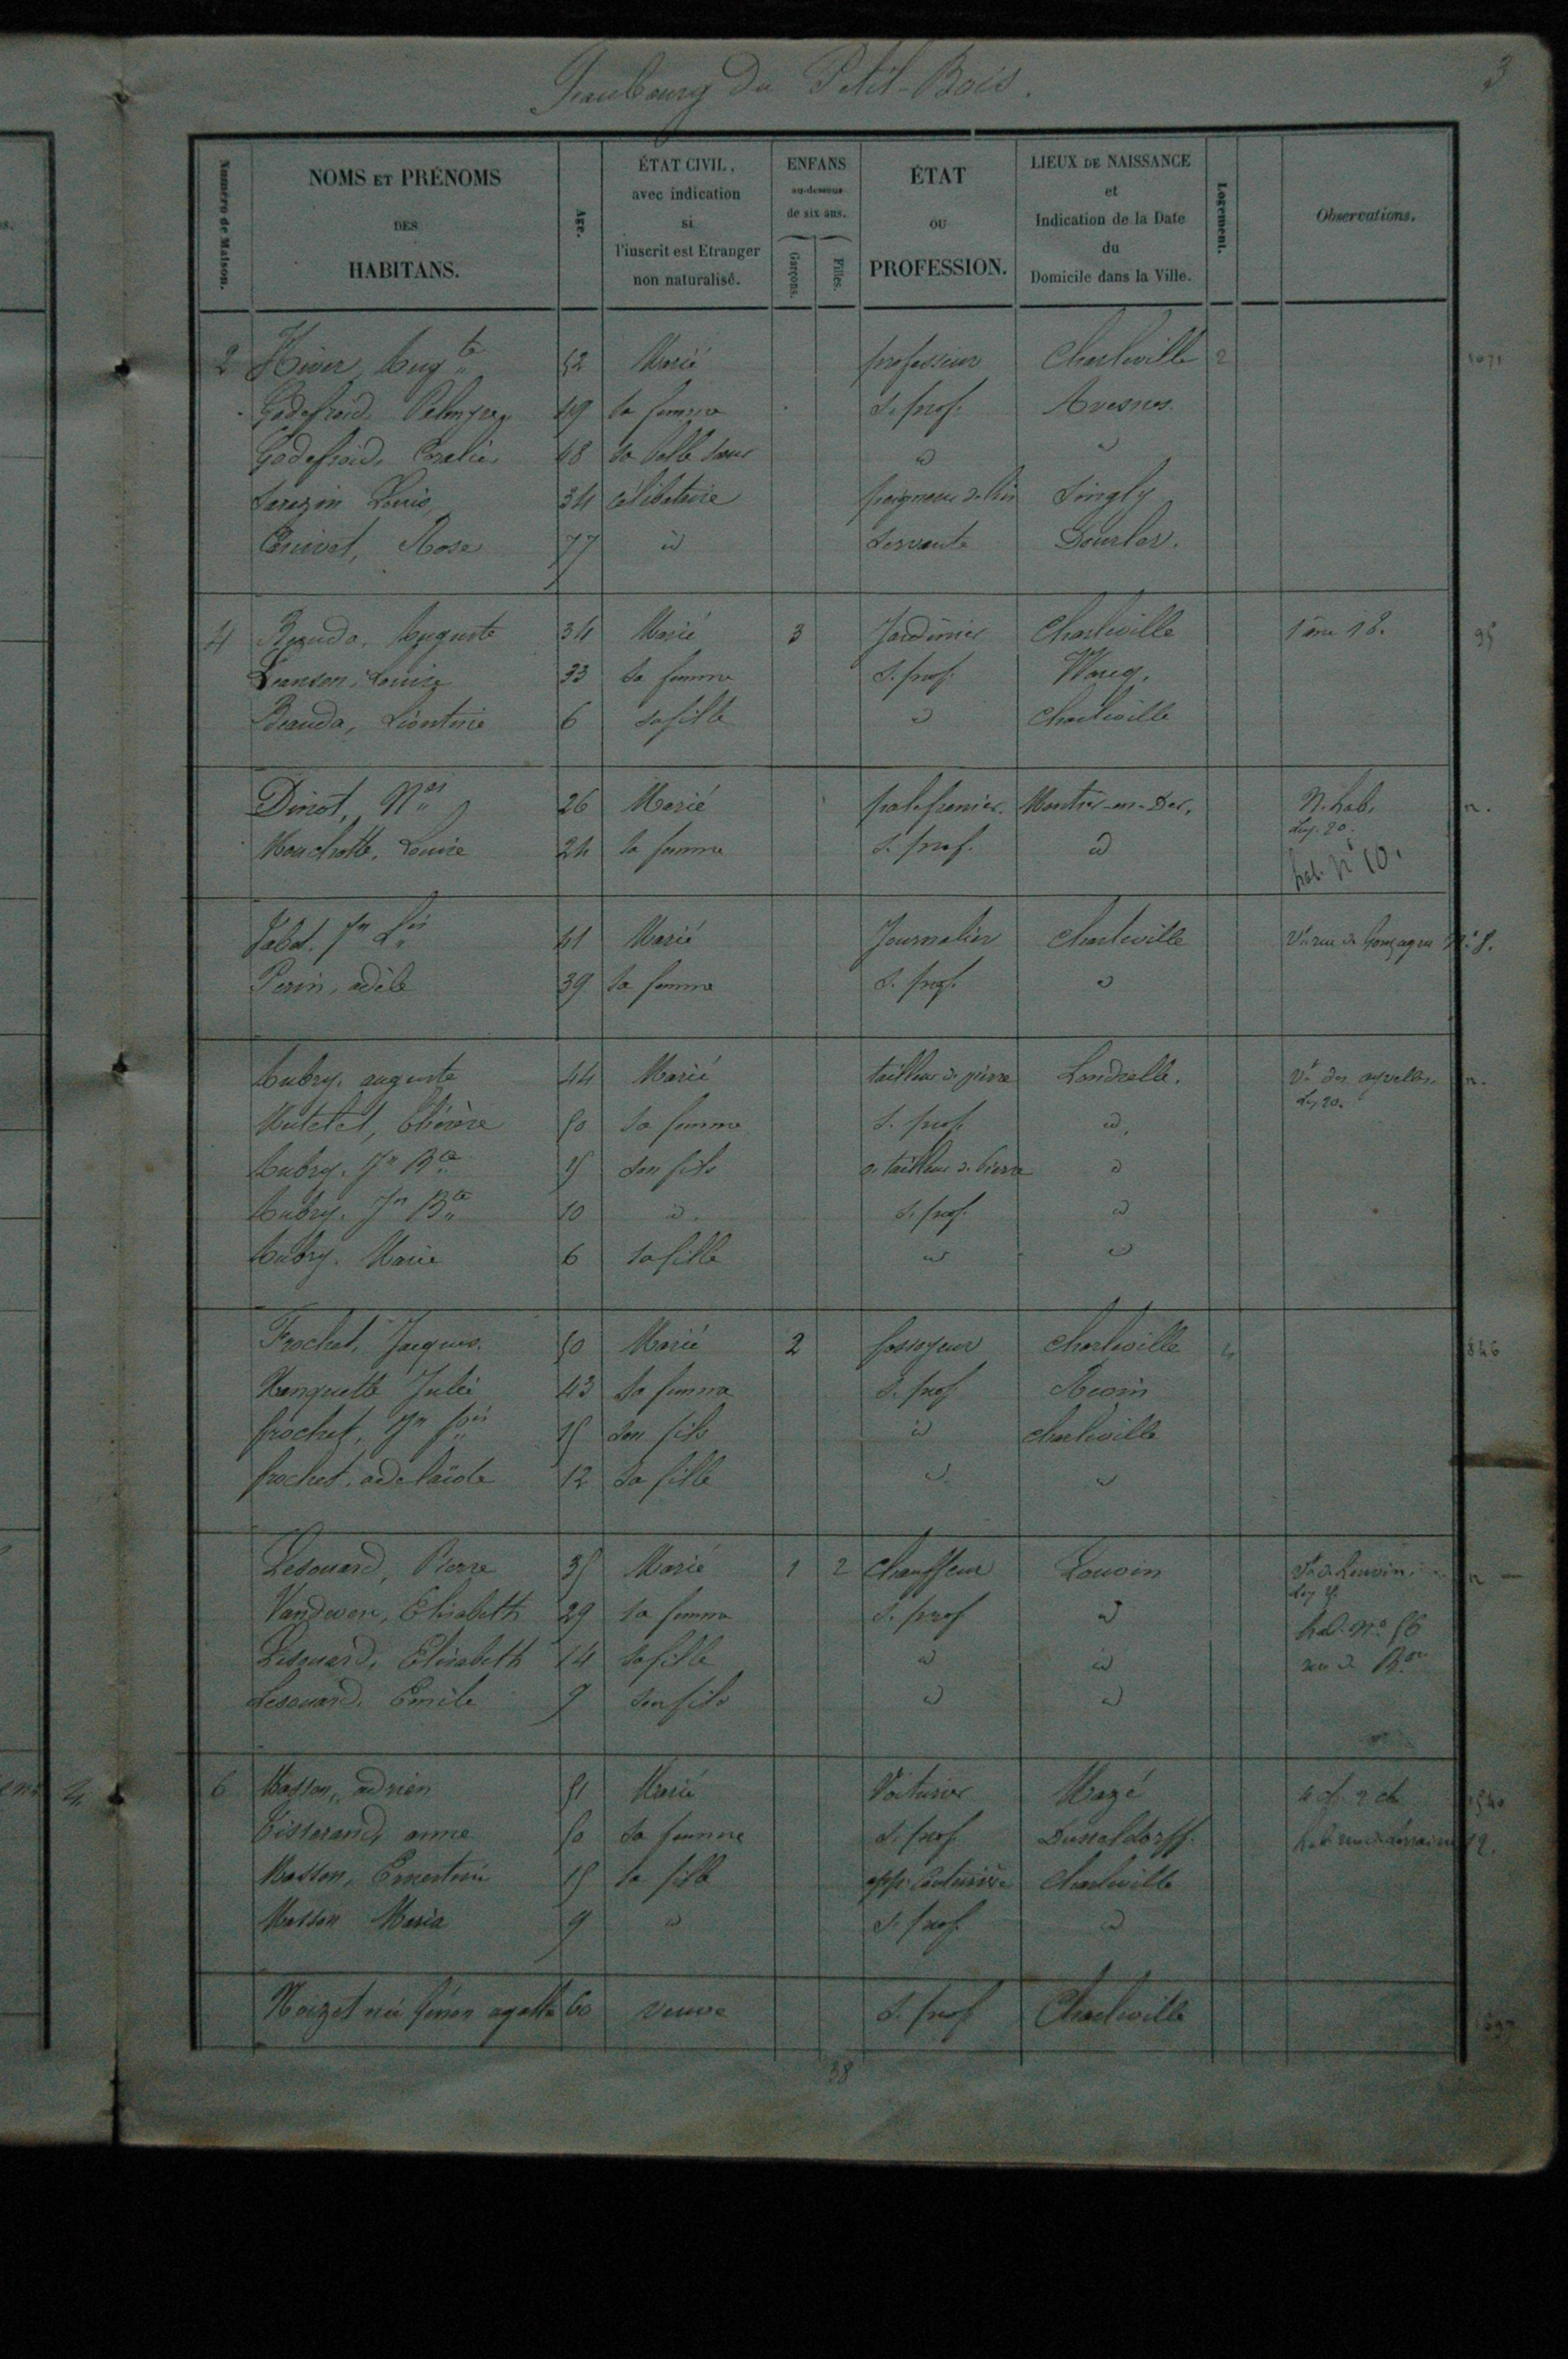 Faubourg du Petit-Bois. 3
Numéro de Maison. NOMS ET PRÉNOMS DES HABITANS. Age. ÉTAT CIVIL, avec indication si l'inscrit est Etranger non naturalisé. ENFANS au-dessous de six ans. Garçons. Filles. ÉTAT OU PROFESSION. LIEUX DE NAISSANCE et Indication de la Date du Domicile dans la Ville. Logement. Observations.
2 Hiver, Aug.te 52 Marié professeur Charleville 2 1071
Godefroid, Palmyre 49 sa femme S. prof. Avesnes
Godefroid, Coralie 48 sa belle soeur id id
Sarazin Louis 34 célibataire peigneur de lin Singly
Cruivet, Rose 77 id servante Dourlers.
4 Beauda, Auguste 34 Marié 3 Jardinier Charleville 95
Lanson, Louise 33 sa femme S. prof. Warcq.
Beauda, Léontine 6 sa fille id Charleville
Dinot, N.as 26 Marié palefrenier. Montier-en-Der. N. hab. n.
Mouchotte, Louise 24 sa femme S. prof. id hab. n° 10.
Jabot, Jn Ls 41 Marié Journalier Charleville Vt rue de Gonzague N° 8.
Perin, adèle 39 sa femme S. prof. id
Aubry, auguste 44 Marié tailleur de pierre Landrelle. n.
Mutelet, Thérèse 50 sa femme S. prof. id.
Aubry, Jn Bte 15 son fils a. tailleur de pierre id
Aubry, Jn Bte 10 id. S. prof. id
Aubry, Marie 6 sa fille id id
Frochet, Jacques. 50 Marié 2 fossoyeur Charleville 4 846
Hanquette Julie 43 sa femme S. prof Revin
frochet, Jn fois 15 son fils id charleville
frochet, adelaïde 12 sa fille id. id
Lesouard, Pierre 35 Marié 1 2 Chauffeur Louvin n
Vandwen, Elisabeth 29 sa femme S. prof id hab. n° 56
Lesouard, Elisabeth 14 sa fille id id rue de
Lesouard, Emile 9 son fils id id
6 Masson, adrien 51 Marié Voiturier Mazé
Tisserand, anne 50 sa femme S. prof. Dusseldorff.
Masson, Ernestine 15 sa fille app. Couturière Charleville
Masson Maria 9 id S. prof. id
Noizet née agathe 60 veuve S. prof Charleville
38